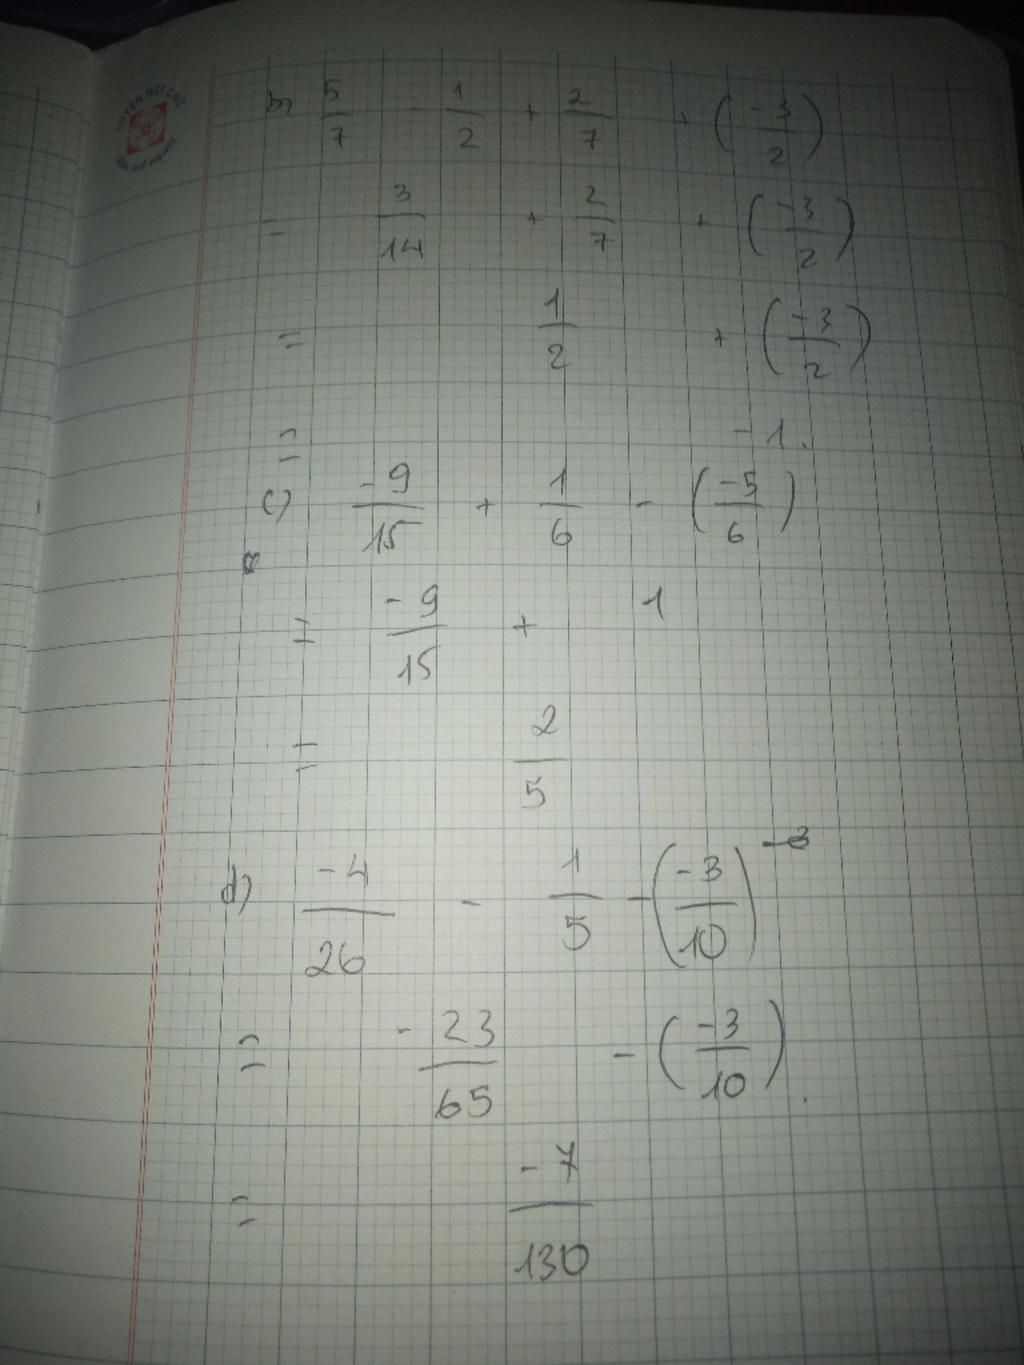 LUYỆN NÉT CHỮ
b) 5/7 - 1/2 + 2/7 + (-3/2)
= 3/14 + 2/7 + (-3/2)
= 1/2 + (-3/2)
= -1.
c) -9/15 + 1/6 - (-5/6)
= -9/15 + 1
= 2/5
d) -4/26 - 1/5 - (-3/10)
= -23/65 - (-3/10).
= -7/130